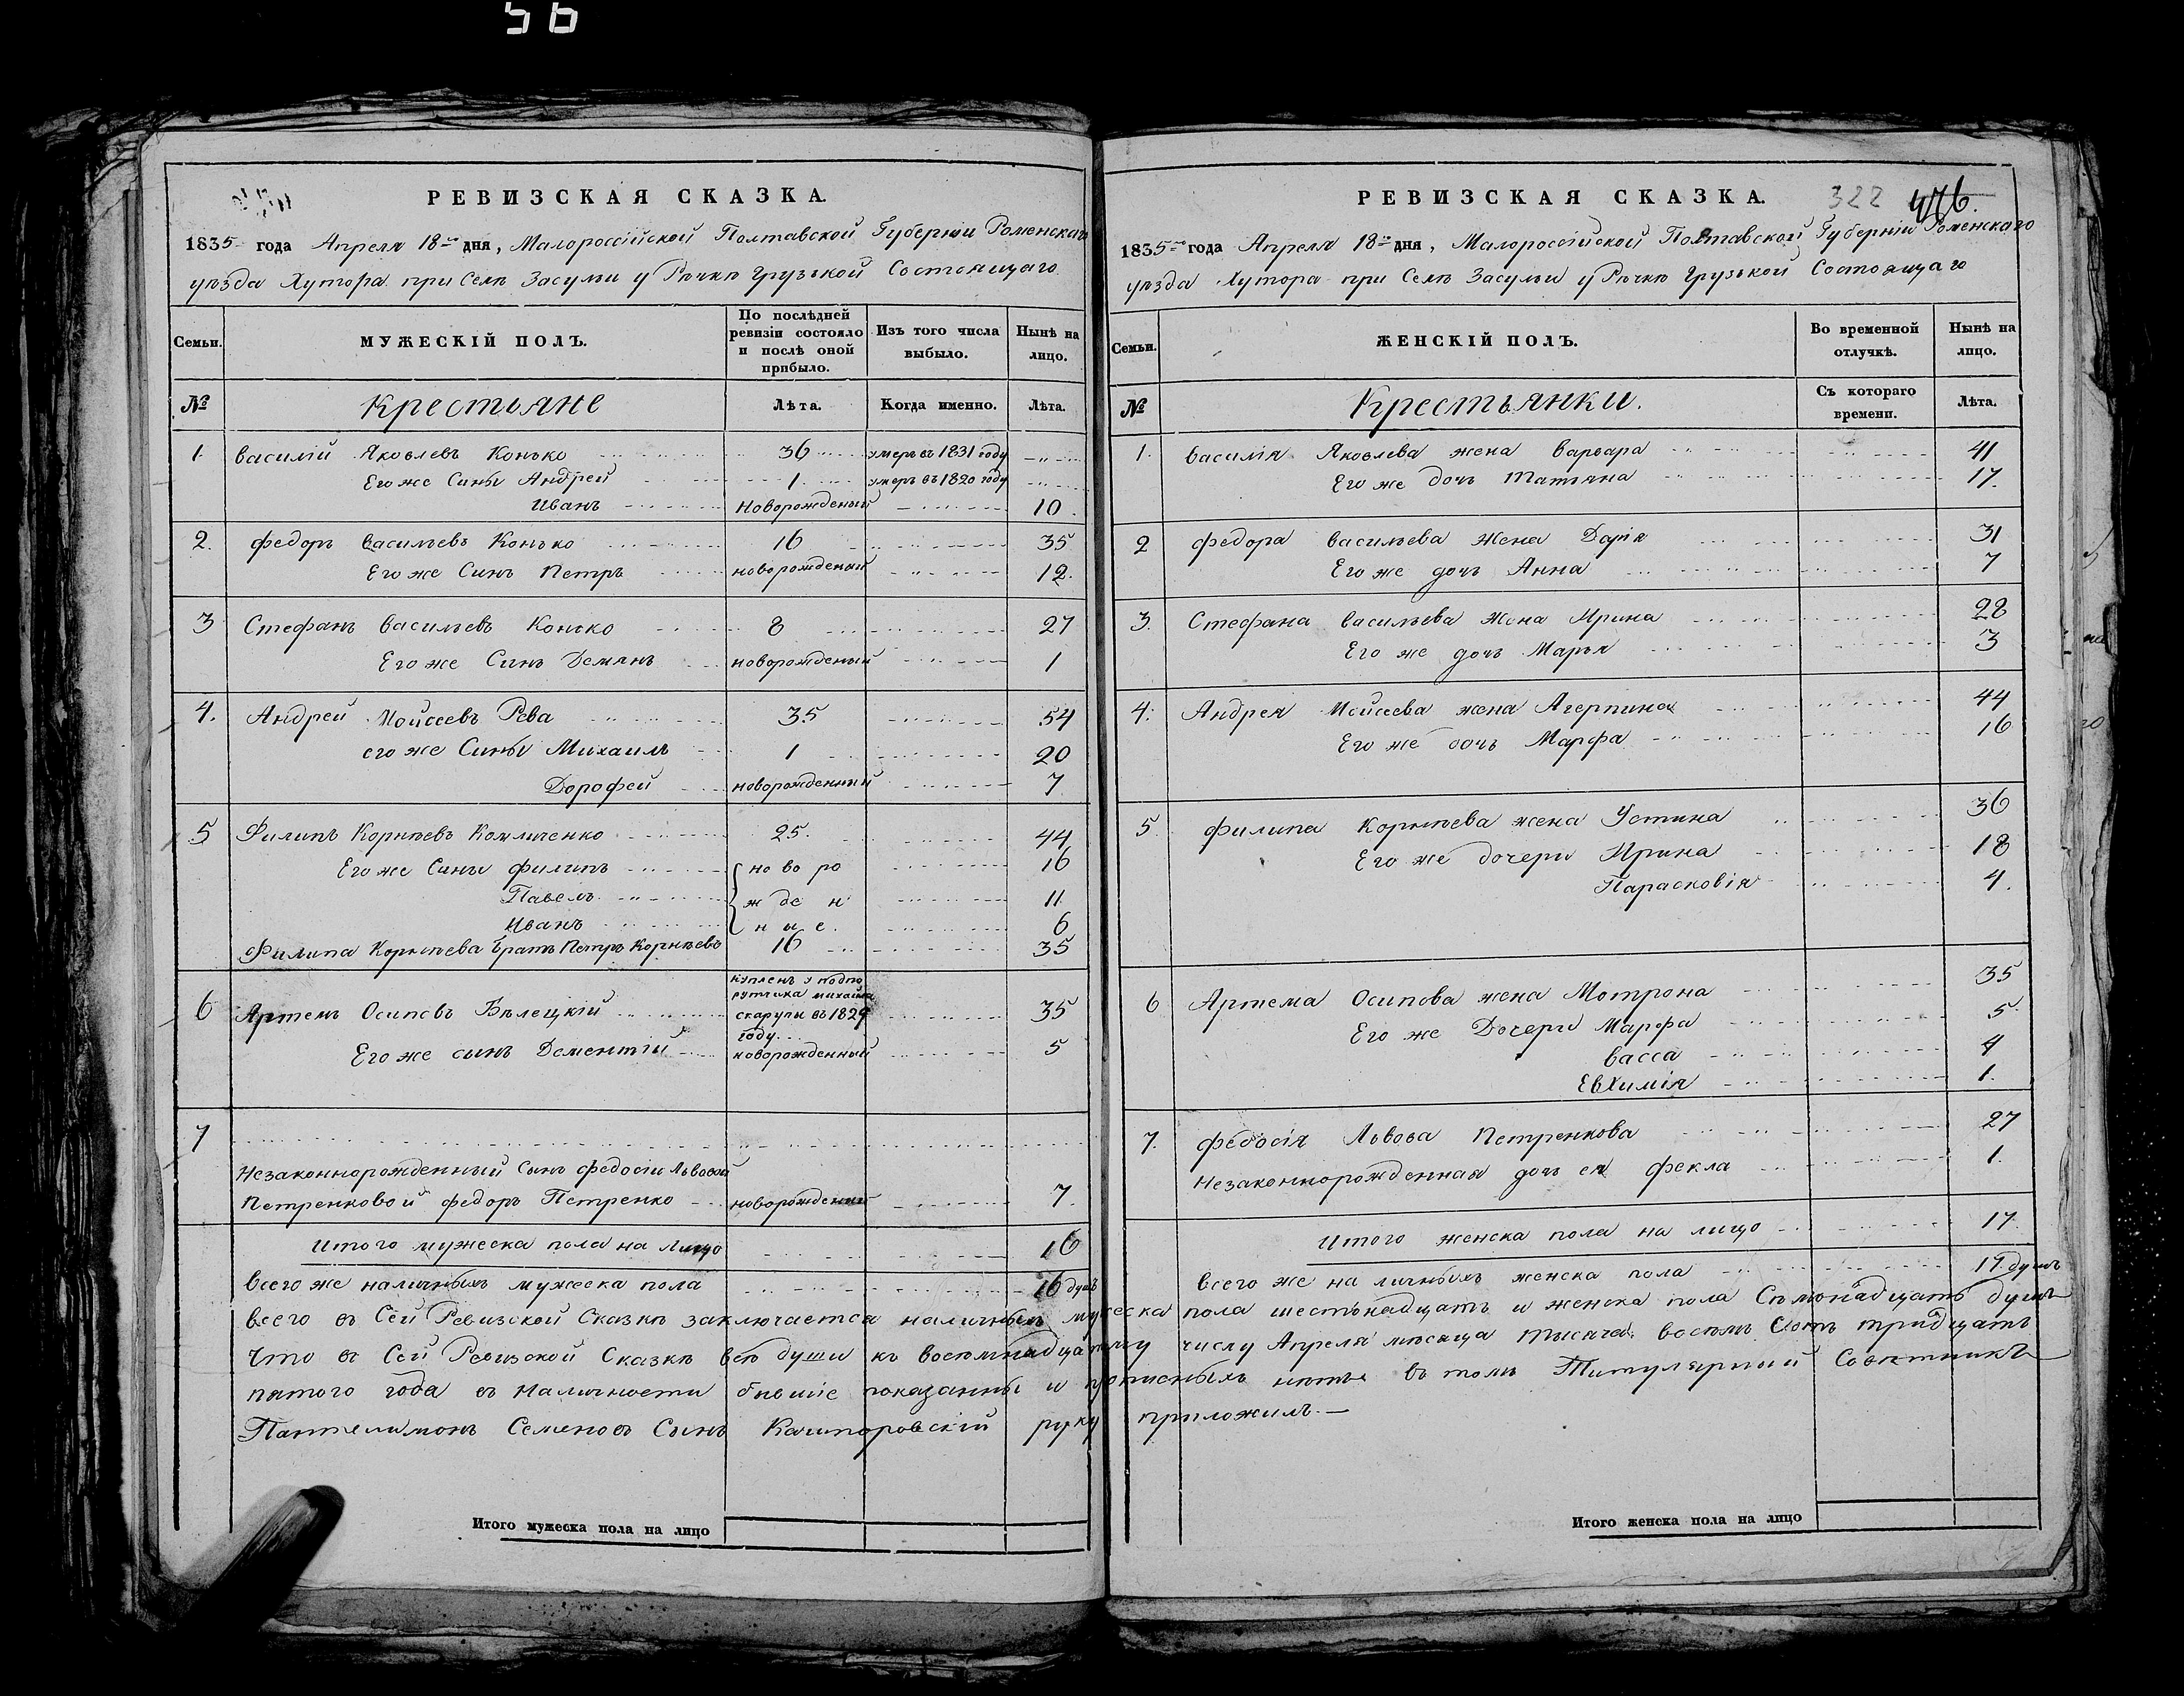 56
РЕВИЗСКАЯ СКАЗКА.
1835 года Апреля 18го дня, Малороссійской Полтавской Губерніи Роменскаго
уѣзда Хутора при Селѣ Засульи у Рѣчкѣ Грузькой Состоящаго
Семьи. МУЖЕСКІЙ ПОЛЪ. По послѣдней ревизіи состояло и послѣ оной прибыло. Изъ того числа выбыло. Нынѣ на лицо.
№ Крестьяне Лѣта. Когда именно. Лѣта.
1. Василій Яковлевъ Конько 36 умеръ въ 1831 году
Его же Сины Андрей 1 умеръ въ 1820 году
Иванъ Новорожденый 10
2. Федоръ Васильевъ Конько 16 35
Его же Синъ Петръ новорожденый 12.
3 Стефанъ Васильевъ Конько 8 27
Его же Синъ Демянъ новорожденый 1
4. Андрей Мойсеевъ Рева 35 54
его же Сины Михаилъ 1 20
Дорофей новорожденный 7
5 Филипъ Корнѣевъ 25. 44
Его же Сины Филипъ новоро 16
Павелъ жден 11
Иванъ ные. 6
Филипа Корнѣева братъ Петръ Корнѣевъ 16 35
6 Артемъ Осиповъ Бѣлецкій купленъ у подпо
ручика михайла
скарупы въ 1829 35
году
Его же сынъ Дементій новорожденный 5
7
Незаконнорожденный Сынъ федосіи Львовой
Петренковой федоръ Петренко новорожденый 7.
Итого мужеска пола на лицо 16
всего же наличныхъ мужеска пола 16 душъ
РЕВИЗСКАЯ СКАЗКА. 322 476
1835го года Апреля 18го дня, Малороссійской Полтавской Губерніи Роменскаго
уѣзда Хутора при Селѣ Засульи у Рѣчкѣ Грузькой Состоящаго
Семьи. ЖЕНСКІЙ ПОЛЪ. Во временной отлучкѣ. Нынѣ на лицо.
№ Крестьянки. Съ котораго времени. Лѣта.
1. Василія Яковлева жена Варвара 41
Его же дочь Татяна 17.
2 Федора Васильева Жена Дарія 31
Его же дочь Анна 7
3. Стефана Васильева Жена Ирина 28
Его же дочь Марья 3
4. Андрея Мойсеева жена Агерпина 44
Его же дочь Марфа 16
5 Филипа Корнѣева жена Устина 36
Его же дочери Ирина 18
Парасковія 4.
6 Артема Осипова жена Мотрона 35
Его же Дочери Марфа 5.
васса 4
Евхимія 1.
7. Федосія Львова Петренкова 27
незаконнорожденная дочь ея фекла 1.
Итого женска пола на лицо 17.
всего же наличныхъ женска пола 17 душъ
всего въ Сей Ревизской Сказкѣ заключается наличныхъ мужеска пола шестьнадцать и женска пола Семьнадцать душъ
Что въ Сей Ревизской Сказкѣ всѣ души къ восемнадцатому числу Апреля мѣсяца тысяча восемь Сотъ тридцать
пятого года въ Наличности бывшіе показанны и прописныхъ нѣтъ въ томъ Титулярный Совѣтникъ
Пантелимонъ Семеновъ Сынъ Кашпоровскій руку приложилъ.
Итого мужеска пола на лицо
Итого женска пола на лицо